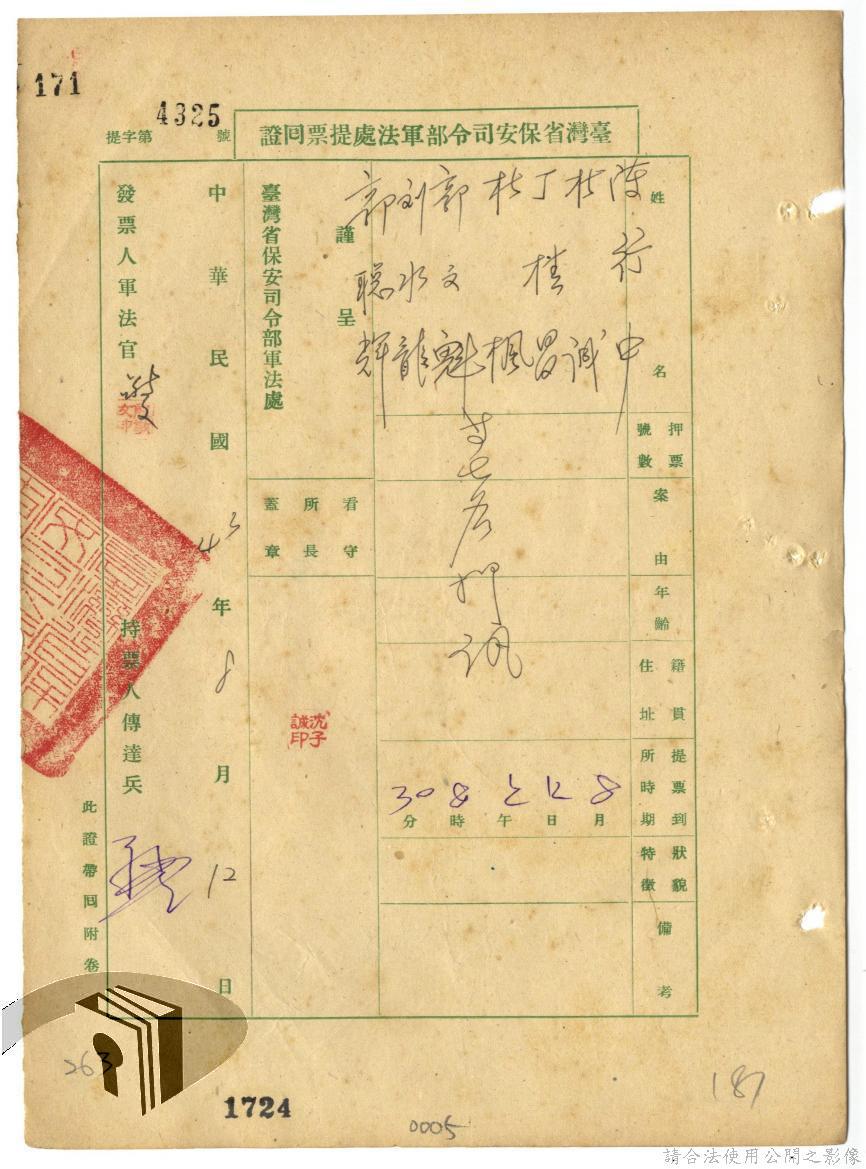 171
提字第4325號
臺灣省保安司令部軍法處提票回證
姓名
陳行中
杜桂誠
丁昌
杜楓
郭文魁
刘水龍
郭聰輝
押票號數
案由
年齡
籍貫住址
等七名押訊
提票到所時期
8月12日上午8時30分
狀貌特徵
備考
謹呈
臺灣省保安司令部軍法處
看守所長蓋章
沈子誠印
中華民國43年8月12日
發票人軍法官
持票人傳達兵
此證帶回附卷
263
1724
0005
187
請合法使用公開之影像